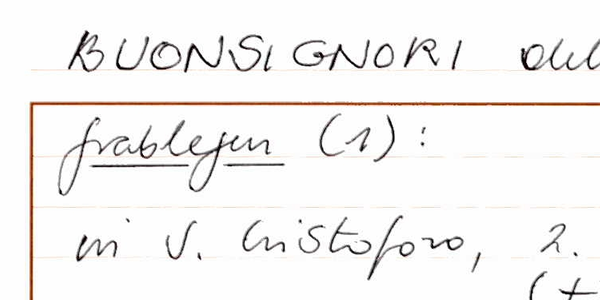 BUONSIGNORI del
Grablegen (1):
in S. Cristoforo, 2.
(+